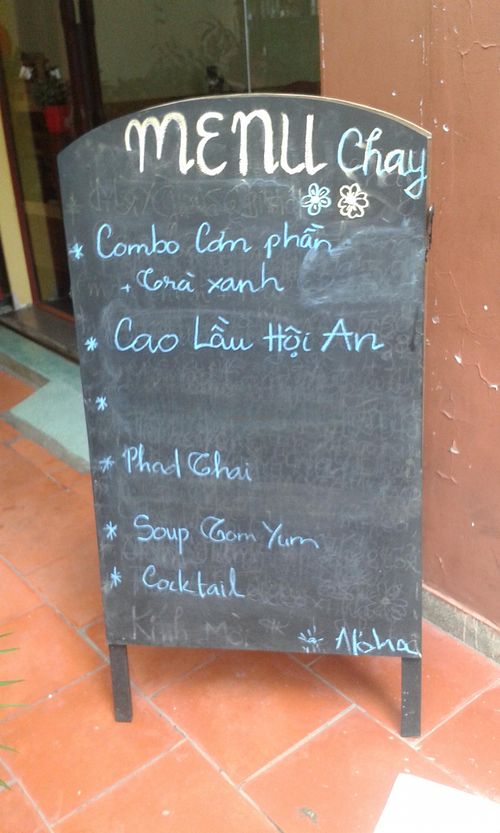 MENU Chay
* Combo Cơm phần
+ Trà xanh
* Cao Lầu Hội An
*
* Phad Thai
* Soup Tom Yum
* Cocktail
Kính Mời
Aloha